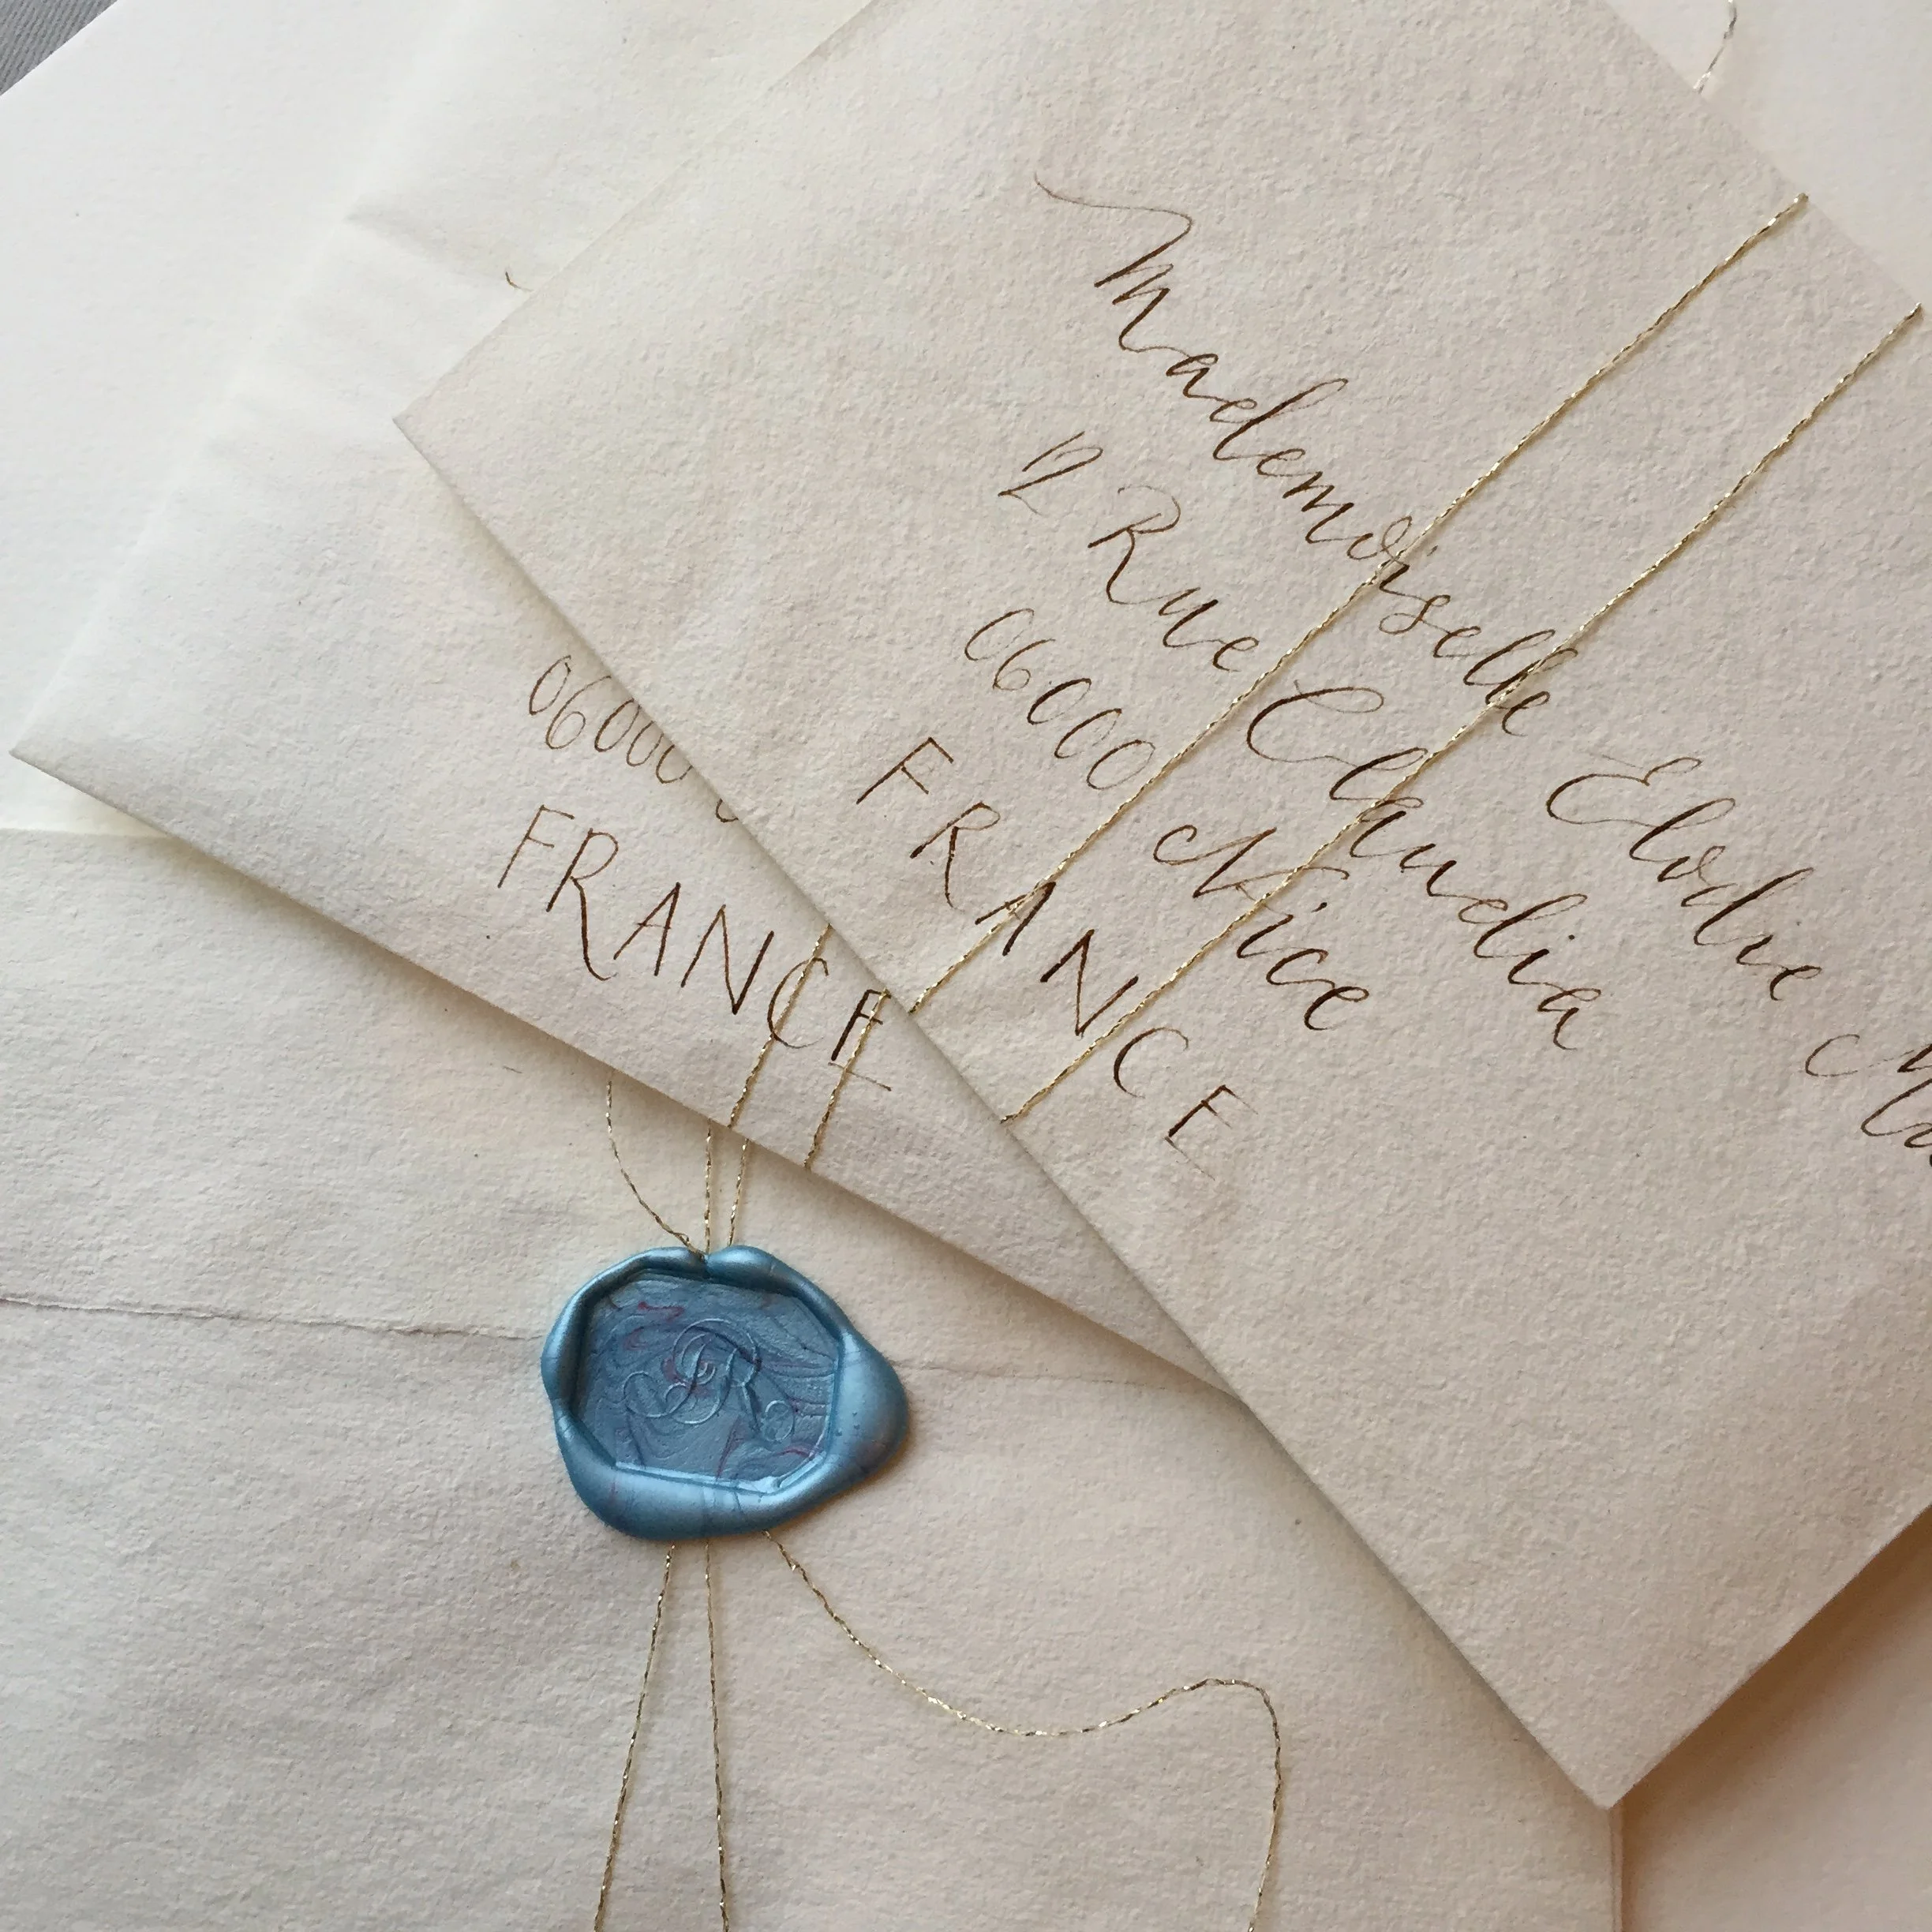 Mademoiselle Elodie
12 Rue Claudia
06000 Nice
FRANCE
06000
FRANCE
JR